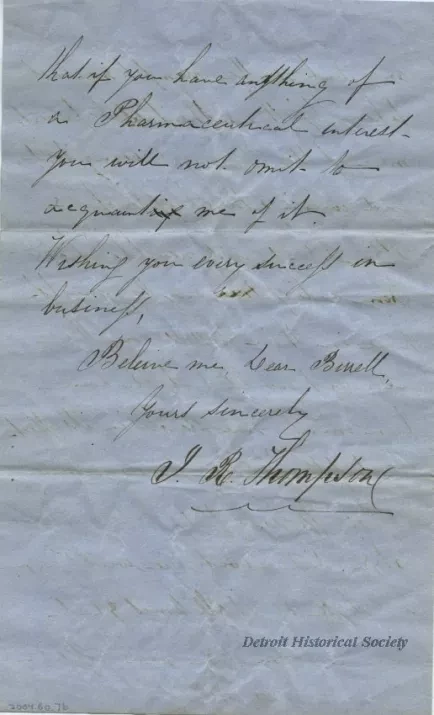 that if you have anything of
a Pharmaceutical interest
you will not omit to
acquaint me of it.
Wishing you every success in
business,
Believe me, Dear Burrell,
Yours sincerely
J. R. Thompson
Detroit Historical Society
2004.60.76